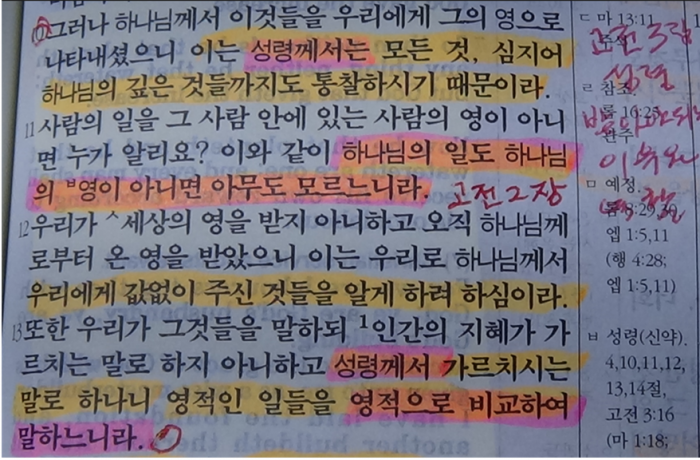 10그러나 하나님께서 이것들을 우리에게 그의 영으로
나타내셨으니 이는 성령께서는 모든 것, 심지어
하나님의 깊은 것들까지도 통찰하시기 때문이라.
11사람의 일을 그 사람 안에 있는 사람의 영이 아니
면 누가 알리요? 이와 같이 하나님의 일도 하나님
의 ㅂ영이 아니면 아무도 모르느니라. 고전 2장
12우리가 ㅅ세상의 영을 받지 아니하고 오직 하나님께
로부터 온 영을 받았으니 이는 우리로 하나님께서
우리에게 값없이 주신 것들을 알게 하려 하심이라.
13또한 우리가 그것들을 말하되 1인간의 지혜가 가
르치는 말로 하지 아니하고 성령께서 가르치시는
말로 하나니 영적인 일들을 영적으로 비교하여
말하느니라.
ㄷ 마 13:11
고전 3장
성결
ㄹ 참조.
롬 16:25
ㅁ 예정.
롬 8:29,30
엡 1:5,11
(행 4:28;
엡 1:5,11)
ㅂ 성령(신약).
4,10,11,12,
13,14절,
고전 3:16
(마 1:18;